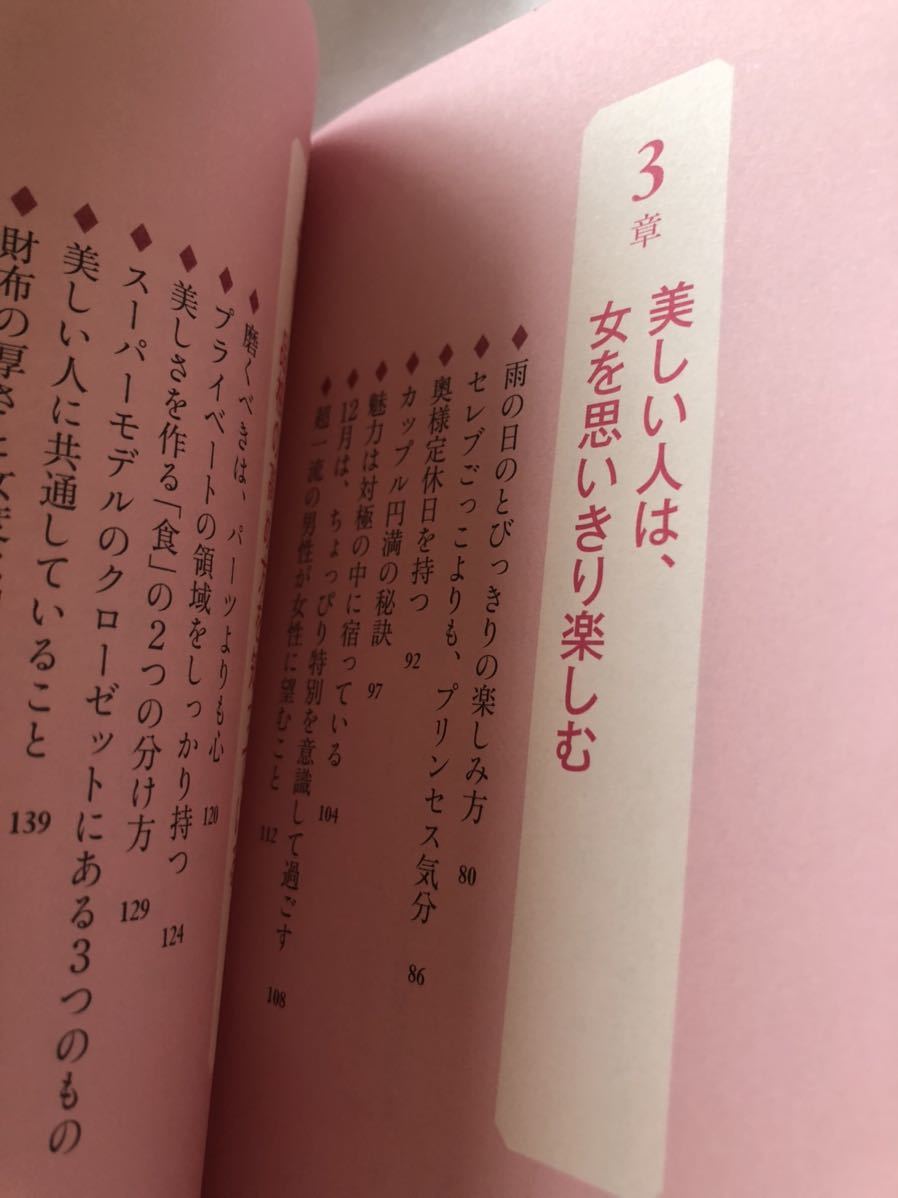 3章
美しい人は、
女を思いきり楽しむ
◆雨の日のとびっきりの楽しみ方 80
◆セレブごっこよりも、プリンセス気分 86
◆奥様定休日を持つ 92
◆カップル円満の秘訣 97
◆魅力は対極の中に宿っている 104
◆12月は、ちょっぴり特別を意識して過ごす 108
◆超一流の男性が女性に望むこと 112
◆磨くべきは、パーツよりも心 120
◆プライベートの領域をしっかり持つ 124
◆美しさを作る「食」の2つの分け方 129
◆スーパーモデルのクローゼットにある3つのもの
◆美しい人に共通していること 139
◆財布の厚さに